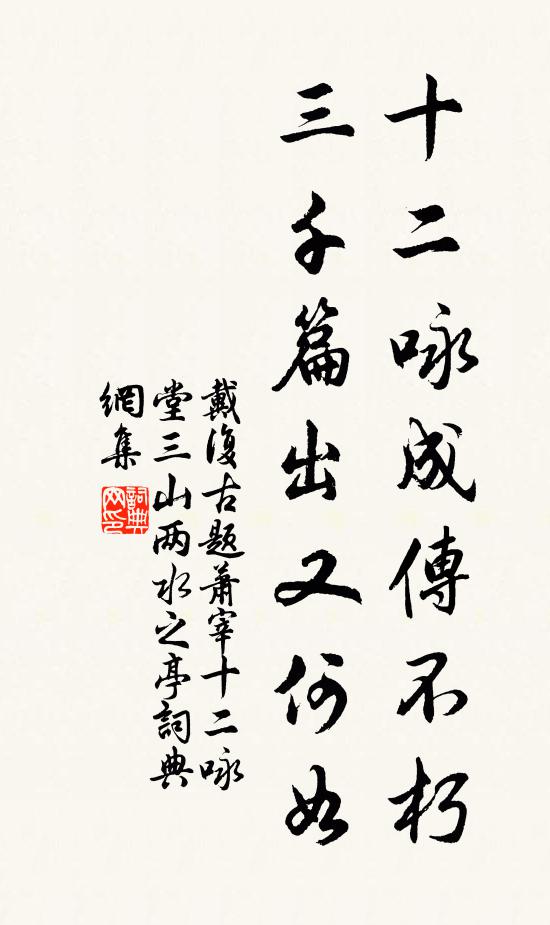 十二咏成傳不朽
三千篇出又何如
戴復古題蕭宰十二咏
堂三山两水之亭詞典
網集
詞典
网印